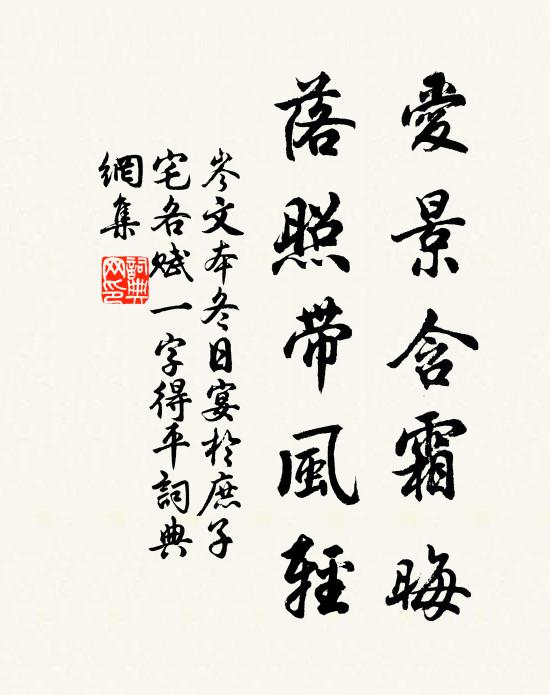 愛景含霜晦
落照帶風輕
岑文本冬日宴於庶子
宅各賦一字得平詞典
網集
詞典
网印